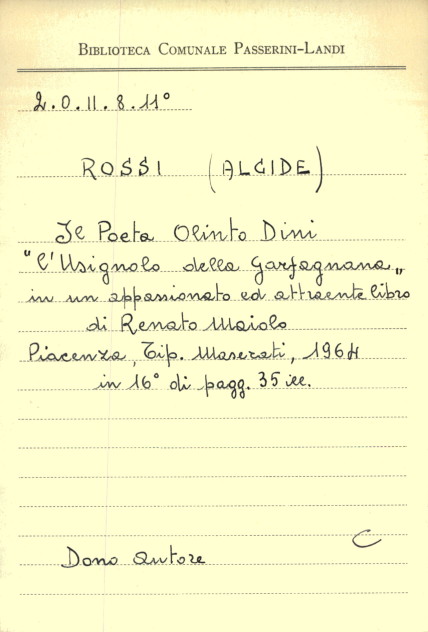 BIBLIOTECA COMUNALE PASSERINI-LANDI
2.0.II.8.11°
ROSSI (ALCIDE)
Il Poeta Olinto Dini
"l'Usignolo della Garfagnana„
in un appassionato ed attraente libro
di Renato Maiolo
Piacenza, Tip. Maserati, 1964
in 16° di pagg. 35 ill.
C
Dono autore